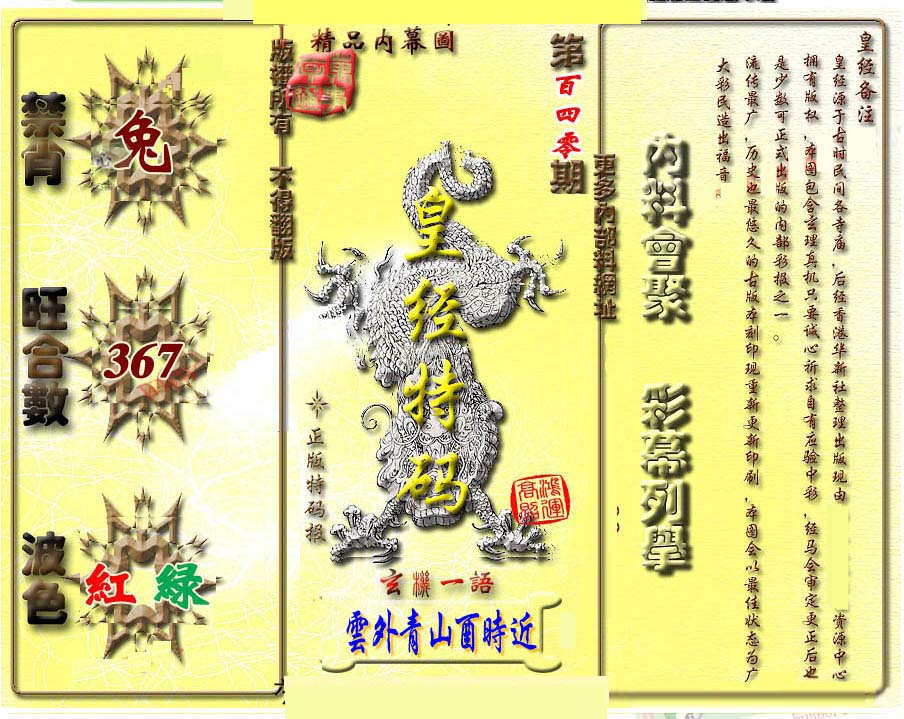 精品内幕圖
第百四零期
版權所有 不得翻版
更多內部料網址
禁肖
兔
旺合數
367
波色
紅 綠
皇经特码
正版特码报
鴻運高照
玄機一語
雲外青山酉時近
內料會聚
彩幕列舉
皇经备注
皇经源于古时民间各寺庙,后经香港华新社整理出版现由 资源中心
拥有版权,本图包含玄理真机只要诚心祈求自有应验中彩,经马会审定更正后也
是少数可正式出版的内部彩报之一。
流传最广,历史也最悠久的古版本刻印现重新更新印刷,本图会以最佳状态为广
大彩民造出福音